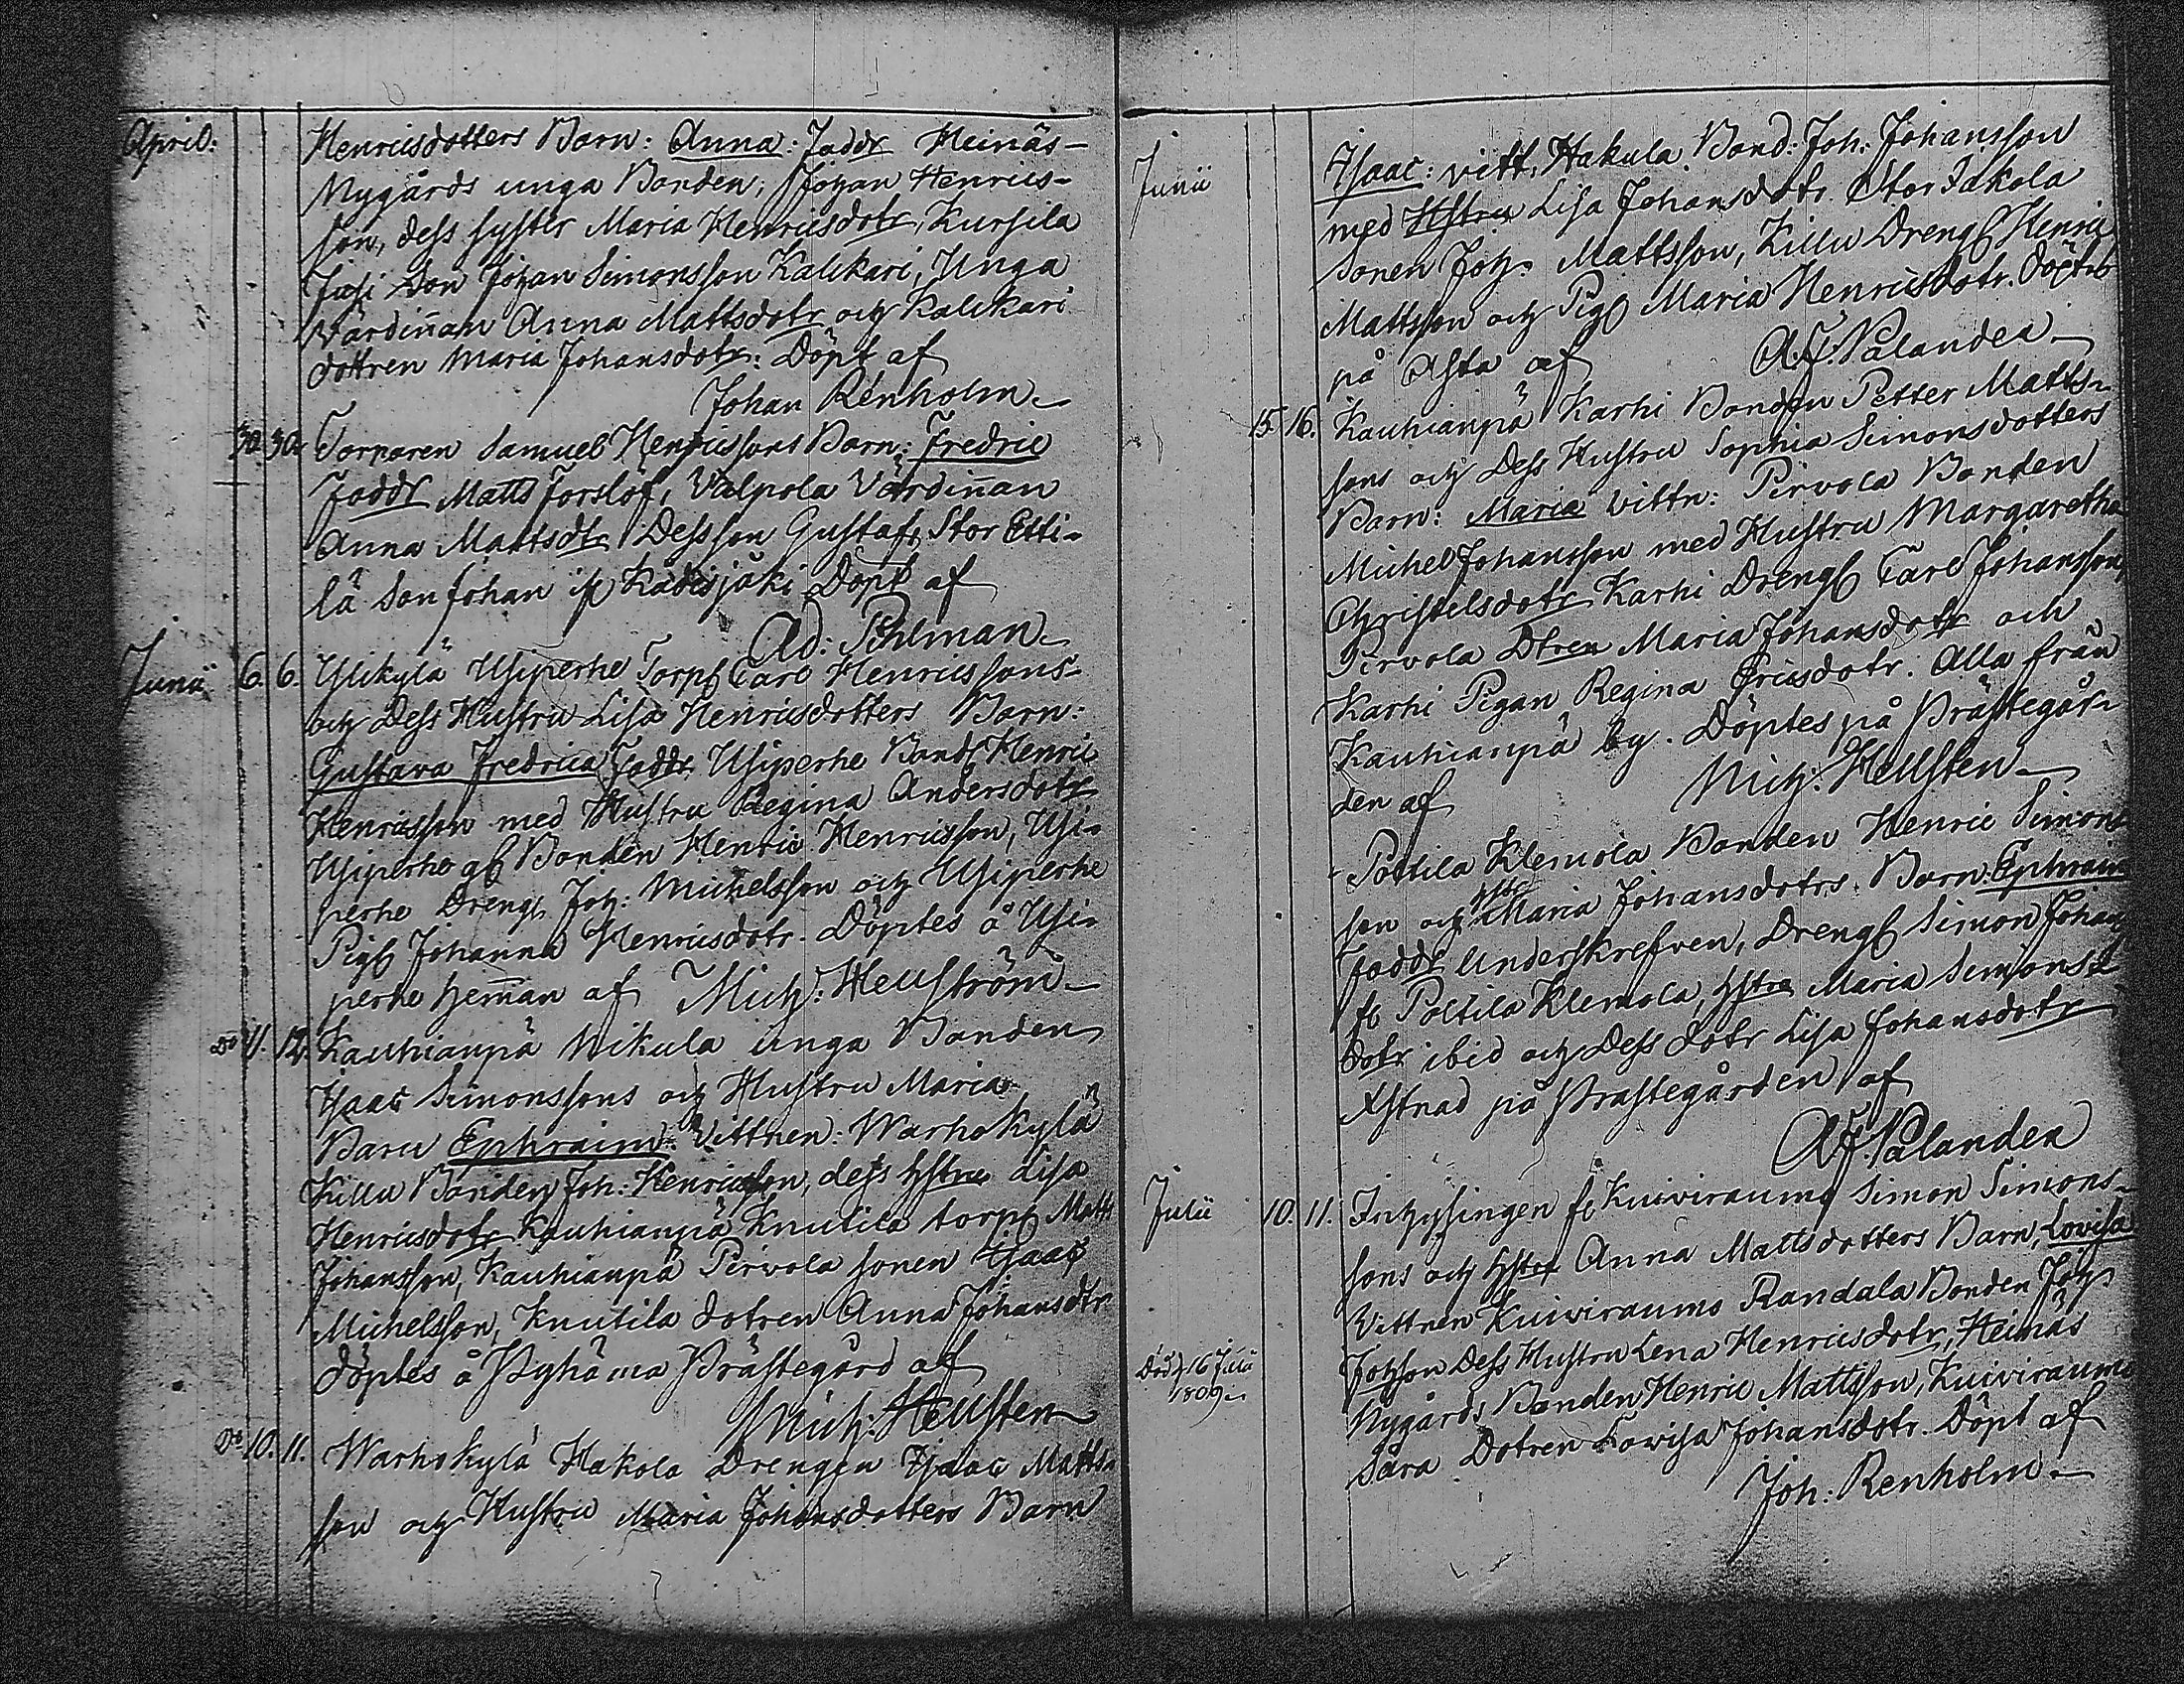 April.
Henricsdotters Barn: Anna: Faddr Heinäs-
Nygårds unga Bonden, Johan Henrics-
son, dess syster Maria Henricsdotr, Kursila
Jusi Son Johan Simonsson Kalckari, Unga
Värdin̄an Anna Mattsdotr och Kalckari
dottren Maria Johansdotr. Döpt af
Johan Renholm
30. 30. Torparen Samuel Henricssons Barn: Fredric
Faddr Matts Forslöf, Valpola Värdin̄an
Anna Mattsdtr Dess son Gustaf, Stor Etti-
lä Son Johan och Kådisjåki Döpt af
Ad: Pihlman
Junii 6. 6. Ylikylä Usiperhe Torp Carl Henricssons
och Dess Hustru Lisa Henricsdotters Barn:
Gustava Fredrica Faddr Usiperhe Band Henric
Henricsson med Hustru Regina Andersdotr
Usiperhe gl Bonden Henric Henricsson, Usi-
perhe Dreng Joh: Michelsson och Usiperhe
Pig Johanna Henricsdotr. Döptes å Usi-
perhe hem̄an af Mich: Hellström
Do 11. 12. Kauhianpä Nikula unga Bonden
Isaac Simonssons och Hustru Maria
Barn Ephraim. Vittnen: Warhokylä
Killu Bonden Joh: Henricsson, dess hstru Lisa
Henricsdotr Kauhianpä Knutila torp Matts
Johansson, Kauhianpä Pirvola sonen Isaac
Michelsson, Knutila dotren Anna Johansdtr
döptes å Pyhäma Prästegård af
Mich: Hellsten
Do 10. 11. Warhokylä Hakola Drengen Isaac Matts-
son och Hustru Maria Johansdotters Barn
Junii
Isaac: vitt. Hakula Bond: Joh: Johansson
med Hstru Lisa Johansdotr. Stor Jakola
Sonen Joh. Mattsson, Killu Dreng Henric
Mattsson och Pig Maria Henricsdotr. Döptes
på Asta af A.F. Palander
15. 16. Kauhianpä Karhi Bonden Petter Matts-
sons och Dess Hustru Sophia Simonsdotters
Barn: Maria Vittn: Pirvola Bonden
Michel Johansson med Hustru Margaretha
Christelsdotr Karhi Dreng Carl Johansson,
Pirvola Dtren Maria Johansdotr och
Karhi Pigan Regina Ericsdotr. Alla från
Kauhianpä by. Döptes på Prästegår-
den af Mich: Hellsten
Polttila Klemola Bonden Henric Simons
son och hstr Maria Johansdotrs. Barn: Ephraim
Faddr Underskrefven, Dreng Simon Johans
fr Polttila Klemola, hstru Maria Simons
dotr ibid och Dess dotr Lisa Johansdotr
på Prästegården af
A.F. Palander
Julii 10. 11. Inhysingen fr Kuiviraumo Simon Simons-
sons och hstru Anna Mattsdotters Barn, Lovisa
Vittnen Kuiviraumo Randala Bonden Joh
Johsson Dess Hustru Lena Henricsdotr, Heinäs
Död 16 Julii
1809
Nygårds Bonden Henric Mattsson, Kuiviraumo
Sara Dotren Lovisa Johansdotr. Döpt af
Joh: Renholm